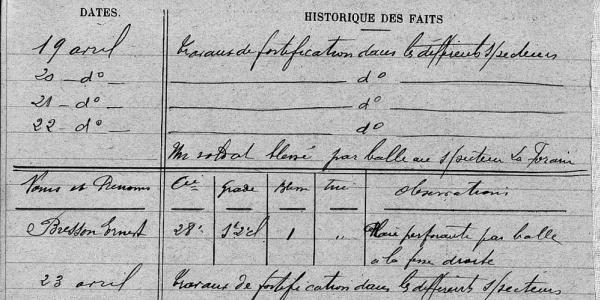 DATES. HISTORIQUE DES FAITS
19 avril Travaux de fortification dans les différents s/secteurs
20 - d° - d°
21 - d° - d°
22 - d° - d°
Un soldat blessé par balle au s/secteur La
Noms et Prénoms Cie Grade Bless Tué Observations
Bresson Ernest 28e S. 2e cl 1 " Plaie perforante par balle
à la fesse droite
23 avril Travaux de fortification dans les différents s/secteurs